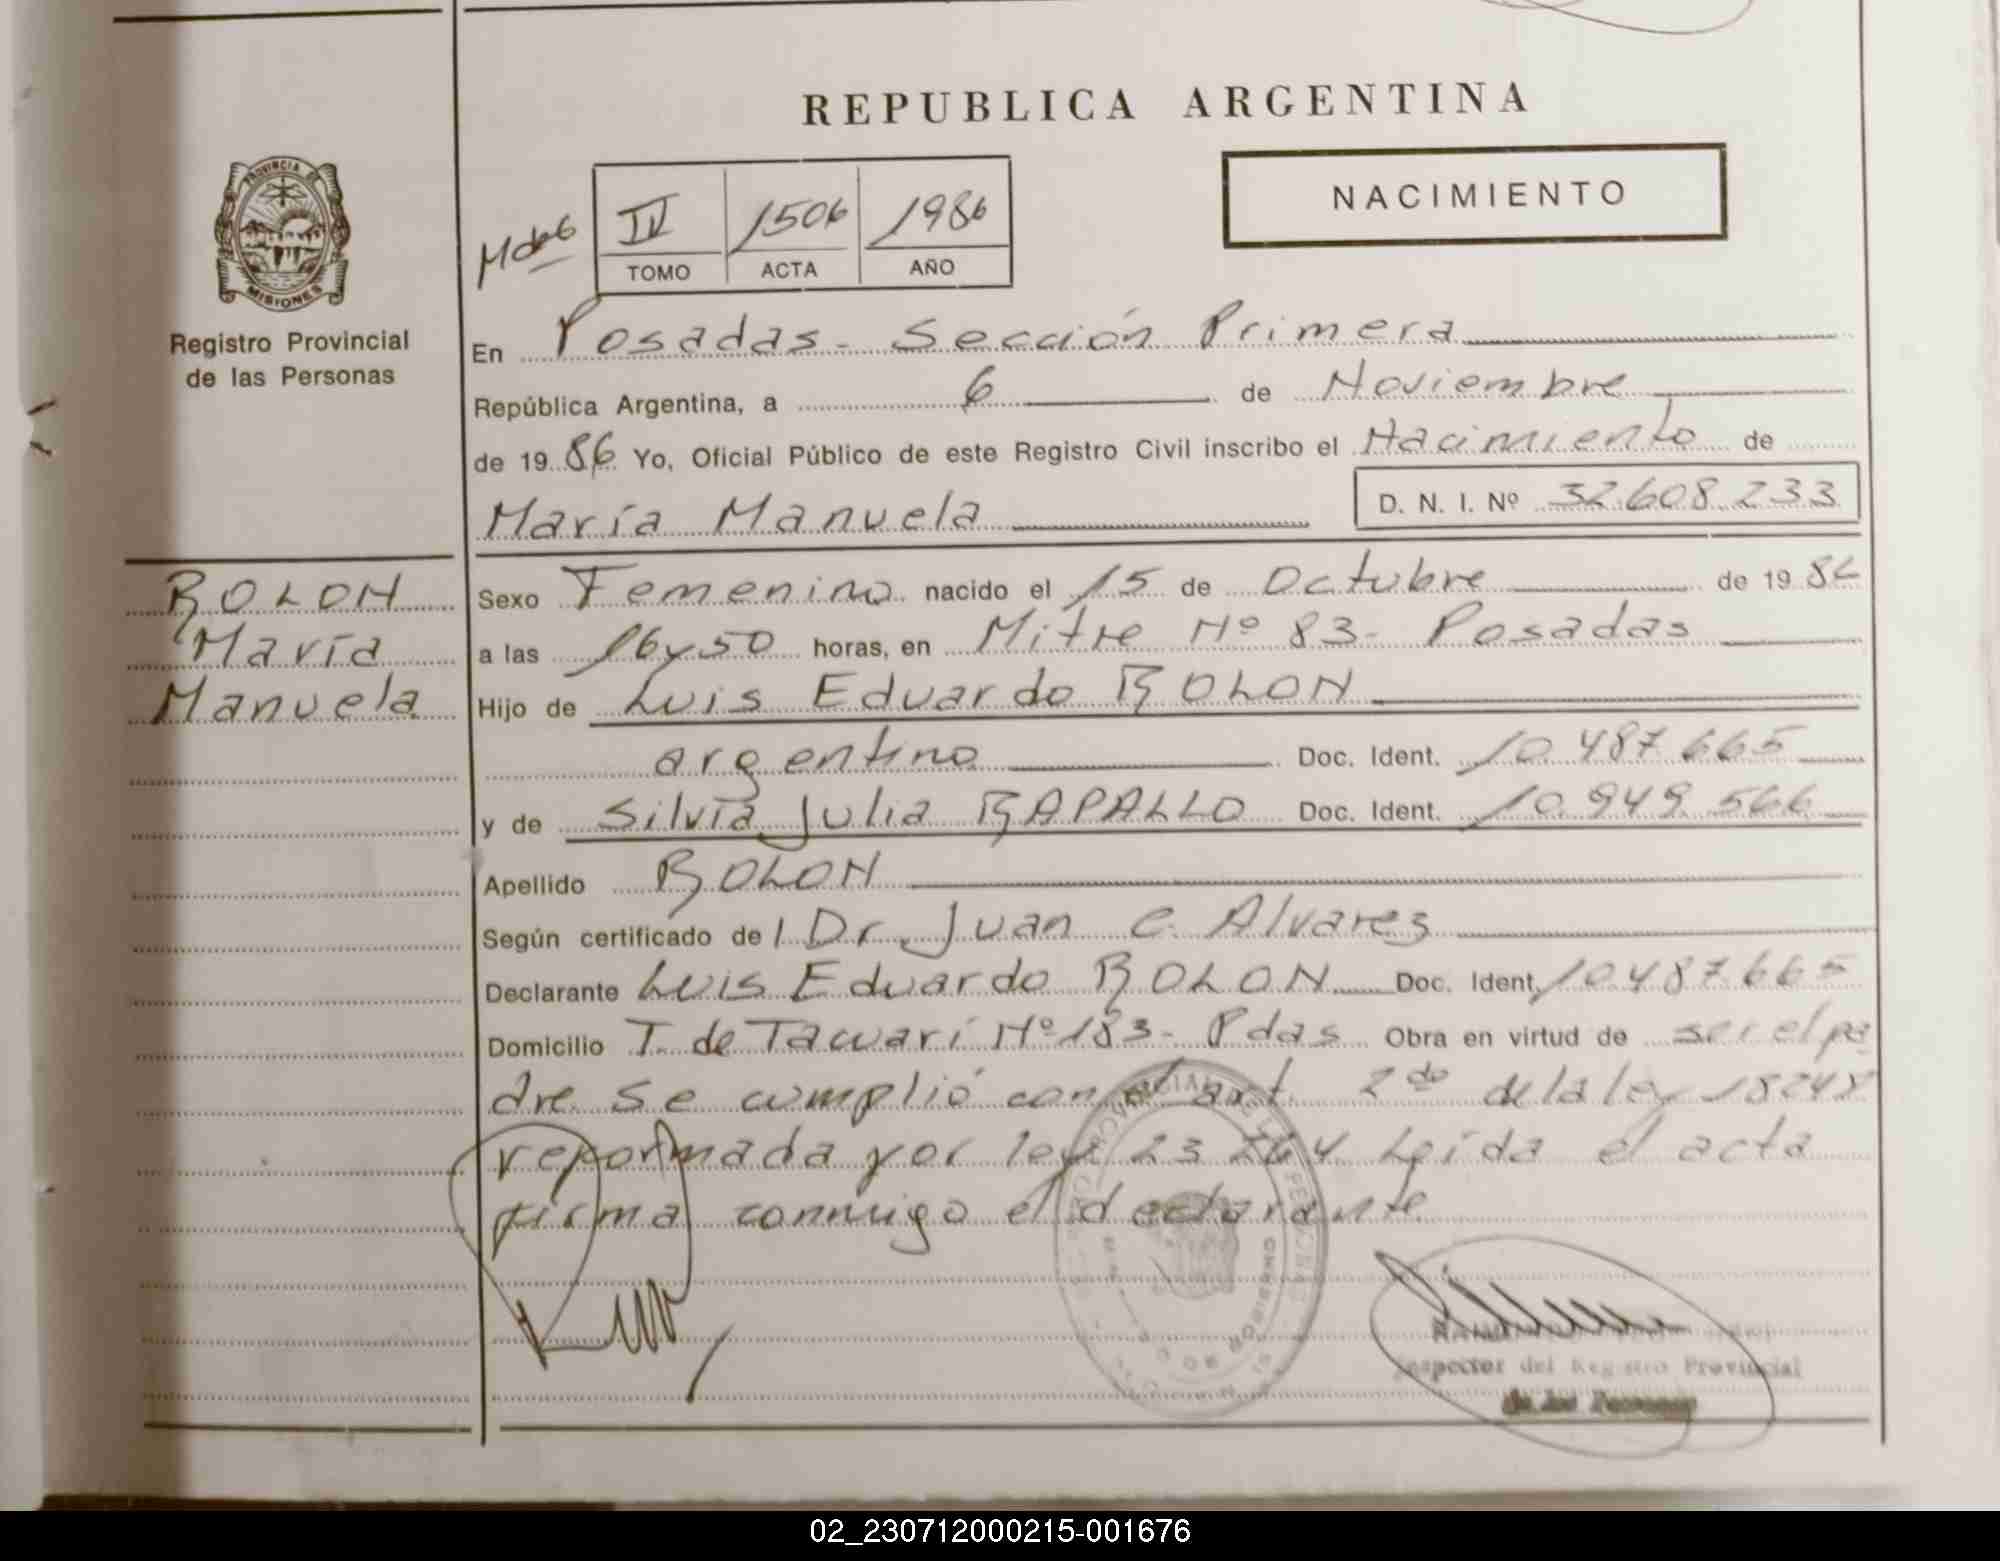 REPUBLICA ARGENTINA
NACIMIENTO
PROVINCIA DE
MISIONES
Registro Provincial
de las Personas
IV 1506 1986
TOMO ACTA AÑO
En Posadas - Sección Primera
República Argentina, a 6 de Noviembre
de 19 86 Yo, Oficial Público de este Registro Civil inscribo el Nacimiento de
María Manuela D. N. I. Nº 32.608.233
ROLON
María
Manuela
Sexo Femenino nacido el 15 de Octubre de 19 86
a las 16 y 50 horas, en Mitre Nº 83 - Posadas
Hijo de Luis Eduardo ROLON
argentino Doc. Ident. 10.487.665
y de Silvia Julia RAPALLO Doc. Ident. 10.949.566
Apellido ROLON
Según certificado del Dr. Juan C. Alvarez
Declarante Luis Eduardo ROLON Doc. Ident. 10.487.665
Domicilio T. de Tacuarí Nº 183 - Pdas Obra en virtud de ser el pa
dre. Se cumplió con el art. 2do de la ley 18248
reformada por ley 23.264 Leída el acta
firma conmigo el declarante
Inspector del Registro Provincial
de las Personas
02_230712000215-001676